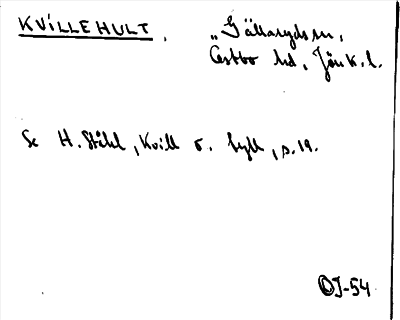 KVILLEHULT.
"Gällaryds sn,
Östbo hd, Jönk.l.
Se H. Ståhl, Kvill o. hyll, s. 19.
OJ-54